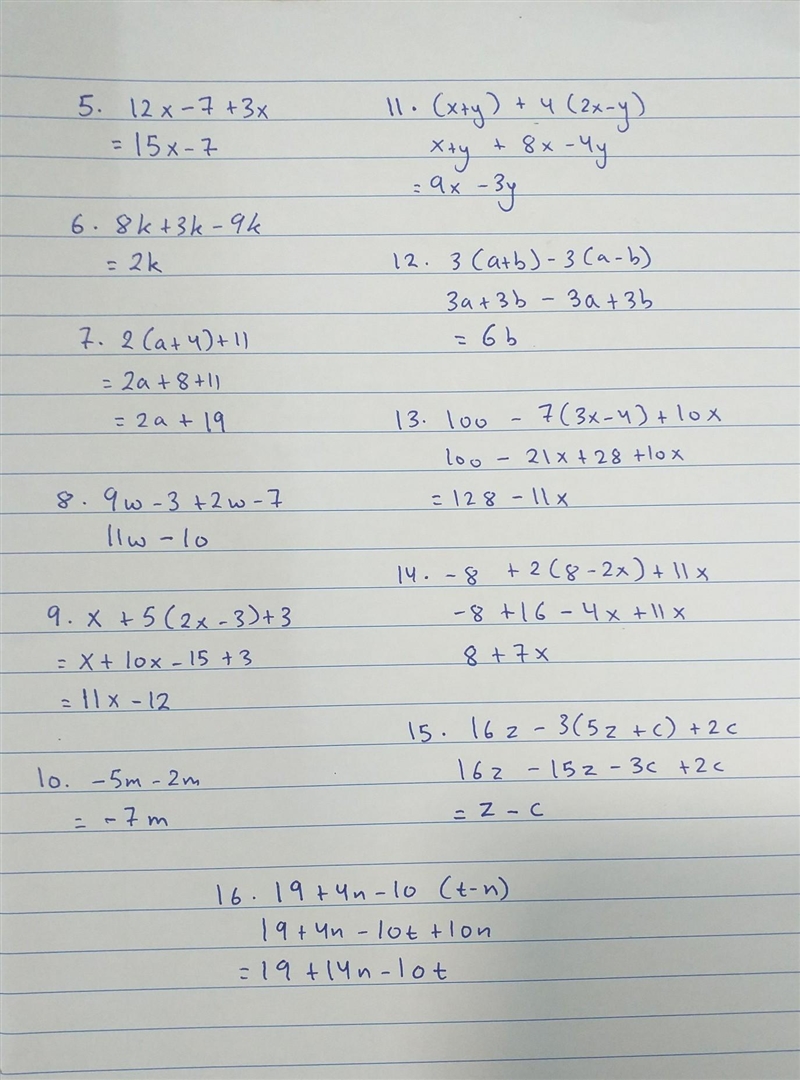 5. 12x - 7 + 3x
= 15x - 7
6. 8k + 3k - 9k
= 2k
7. 2(a+4)+11
= 2a + 8 + 11
= 2a + 19
8. 9w - 3 + 2w - 7
11w - 10
9. x + 5(2x - 3) + 3
= x + 10x - 15 + 3
= 11x - 12
10. -5m - 2m
= -7m
11. (x+y) + 4(2x-y)
x+y + 8x - 4y
= 9x - 3y
12. 3(a+b) - 3(a-b)
3a+3b - 3a+3b
= 6b
13. 100 - 7(3x-4) + 10x
100 - 21x + 28 + 10x
= 128 - 11x
14. -8 + 2(8-2x) + 11x
-8 + 16 - 4x + 11x
8 + 7x
15. 16z - 3(5z + c) + 2c
16z - 15z - 3c + 2c
= z - c
16. 19 + 4n - 10 (t-n)
19 + 4n - 10t + 10n
= 19 + 14n - 10t